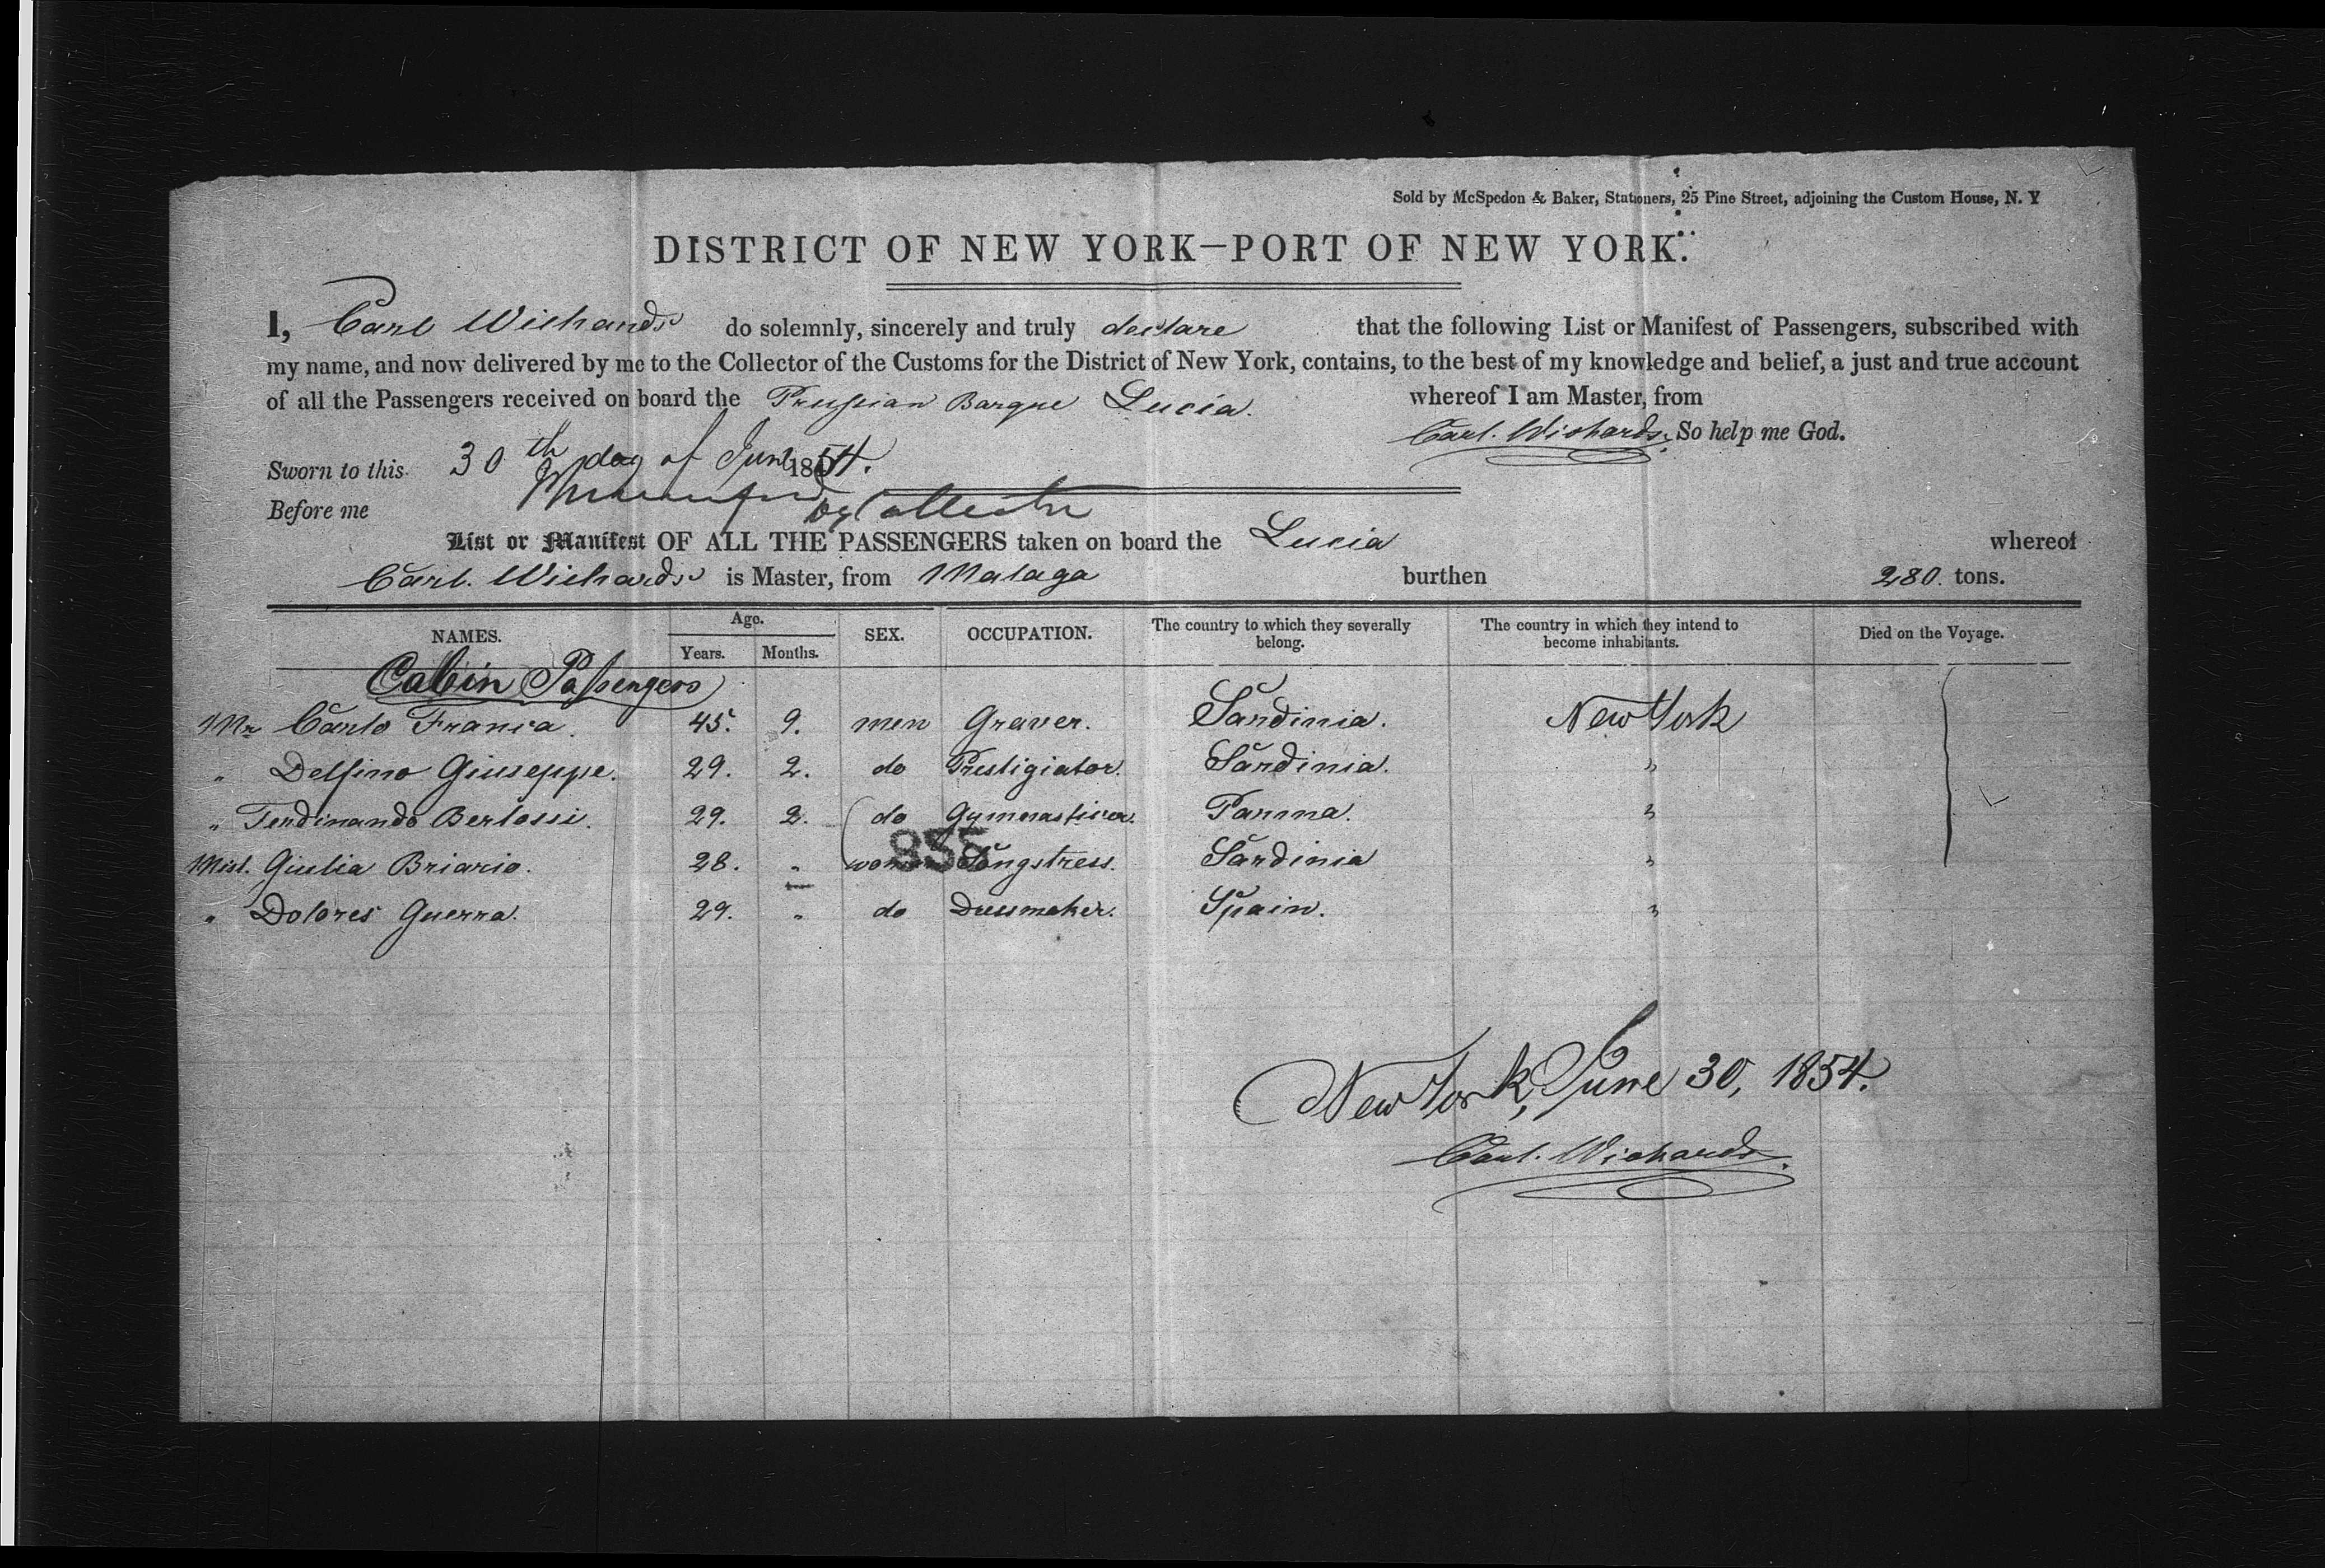 Sold by McSpedon & Baker, Stationers, 25 Pine Street, adjoining the Custom House, N. Y
DISTRICT OF NEW YORK—PORT OF NEW YORK.
I, Carl Wichards do solemnly, sincerely and truly declare that the following List or Manifest of Passengers, subscribed with
my name, and now delivered by me to the Collector of the Customs for the District of New York, contains, to the best of my knowledge and belief, a just and true account
of all the Passengers received on board the Prussian Barque Lucia. whereof I am Master, from
Carl. Wichards. So help me God.
Sworn to this 30th day of June 1854.
Before me Dy Collector
List or Manifest OF ALL THE PASSENGERS taken on board the Lucia whereof
Carl. Wichards is Master, from Malaga burthen 280. tons.
NAMES. Age. Years. Months. SEX. OCCUPATION. The country to which they severally belong. The country in which they intend to become inhabitants. Died on the Voyage.
Cabin Passengers
Mr Carlo Franca. 45. 9. men Graver. Sardinia. New York
" Delfino Giuseppe. 29. 2. do Prestigiator. Sardinia. "
" Ferdinando Bertossi. 29. 2. do Parma. "
855
Mist. Giulia Briario. 28. " women Songstress. Sardinia "
" Dolores Guerra. 29. " do Dressmaker. Spain. "
New York, June 30, 1854.
Carl. Wichards.